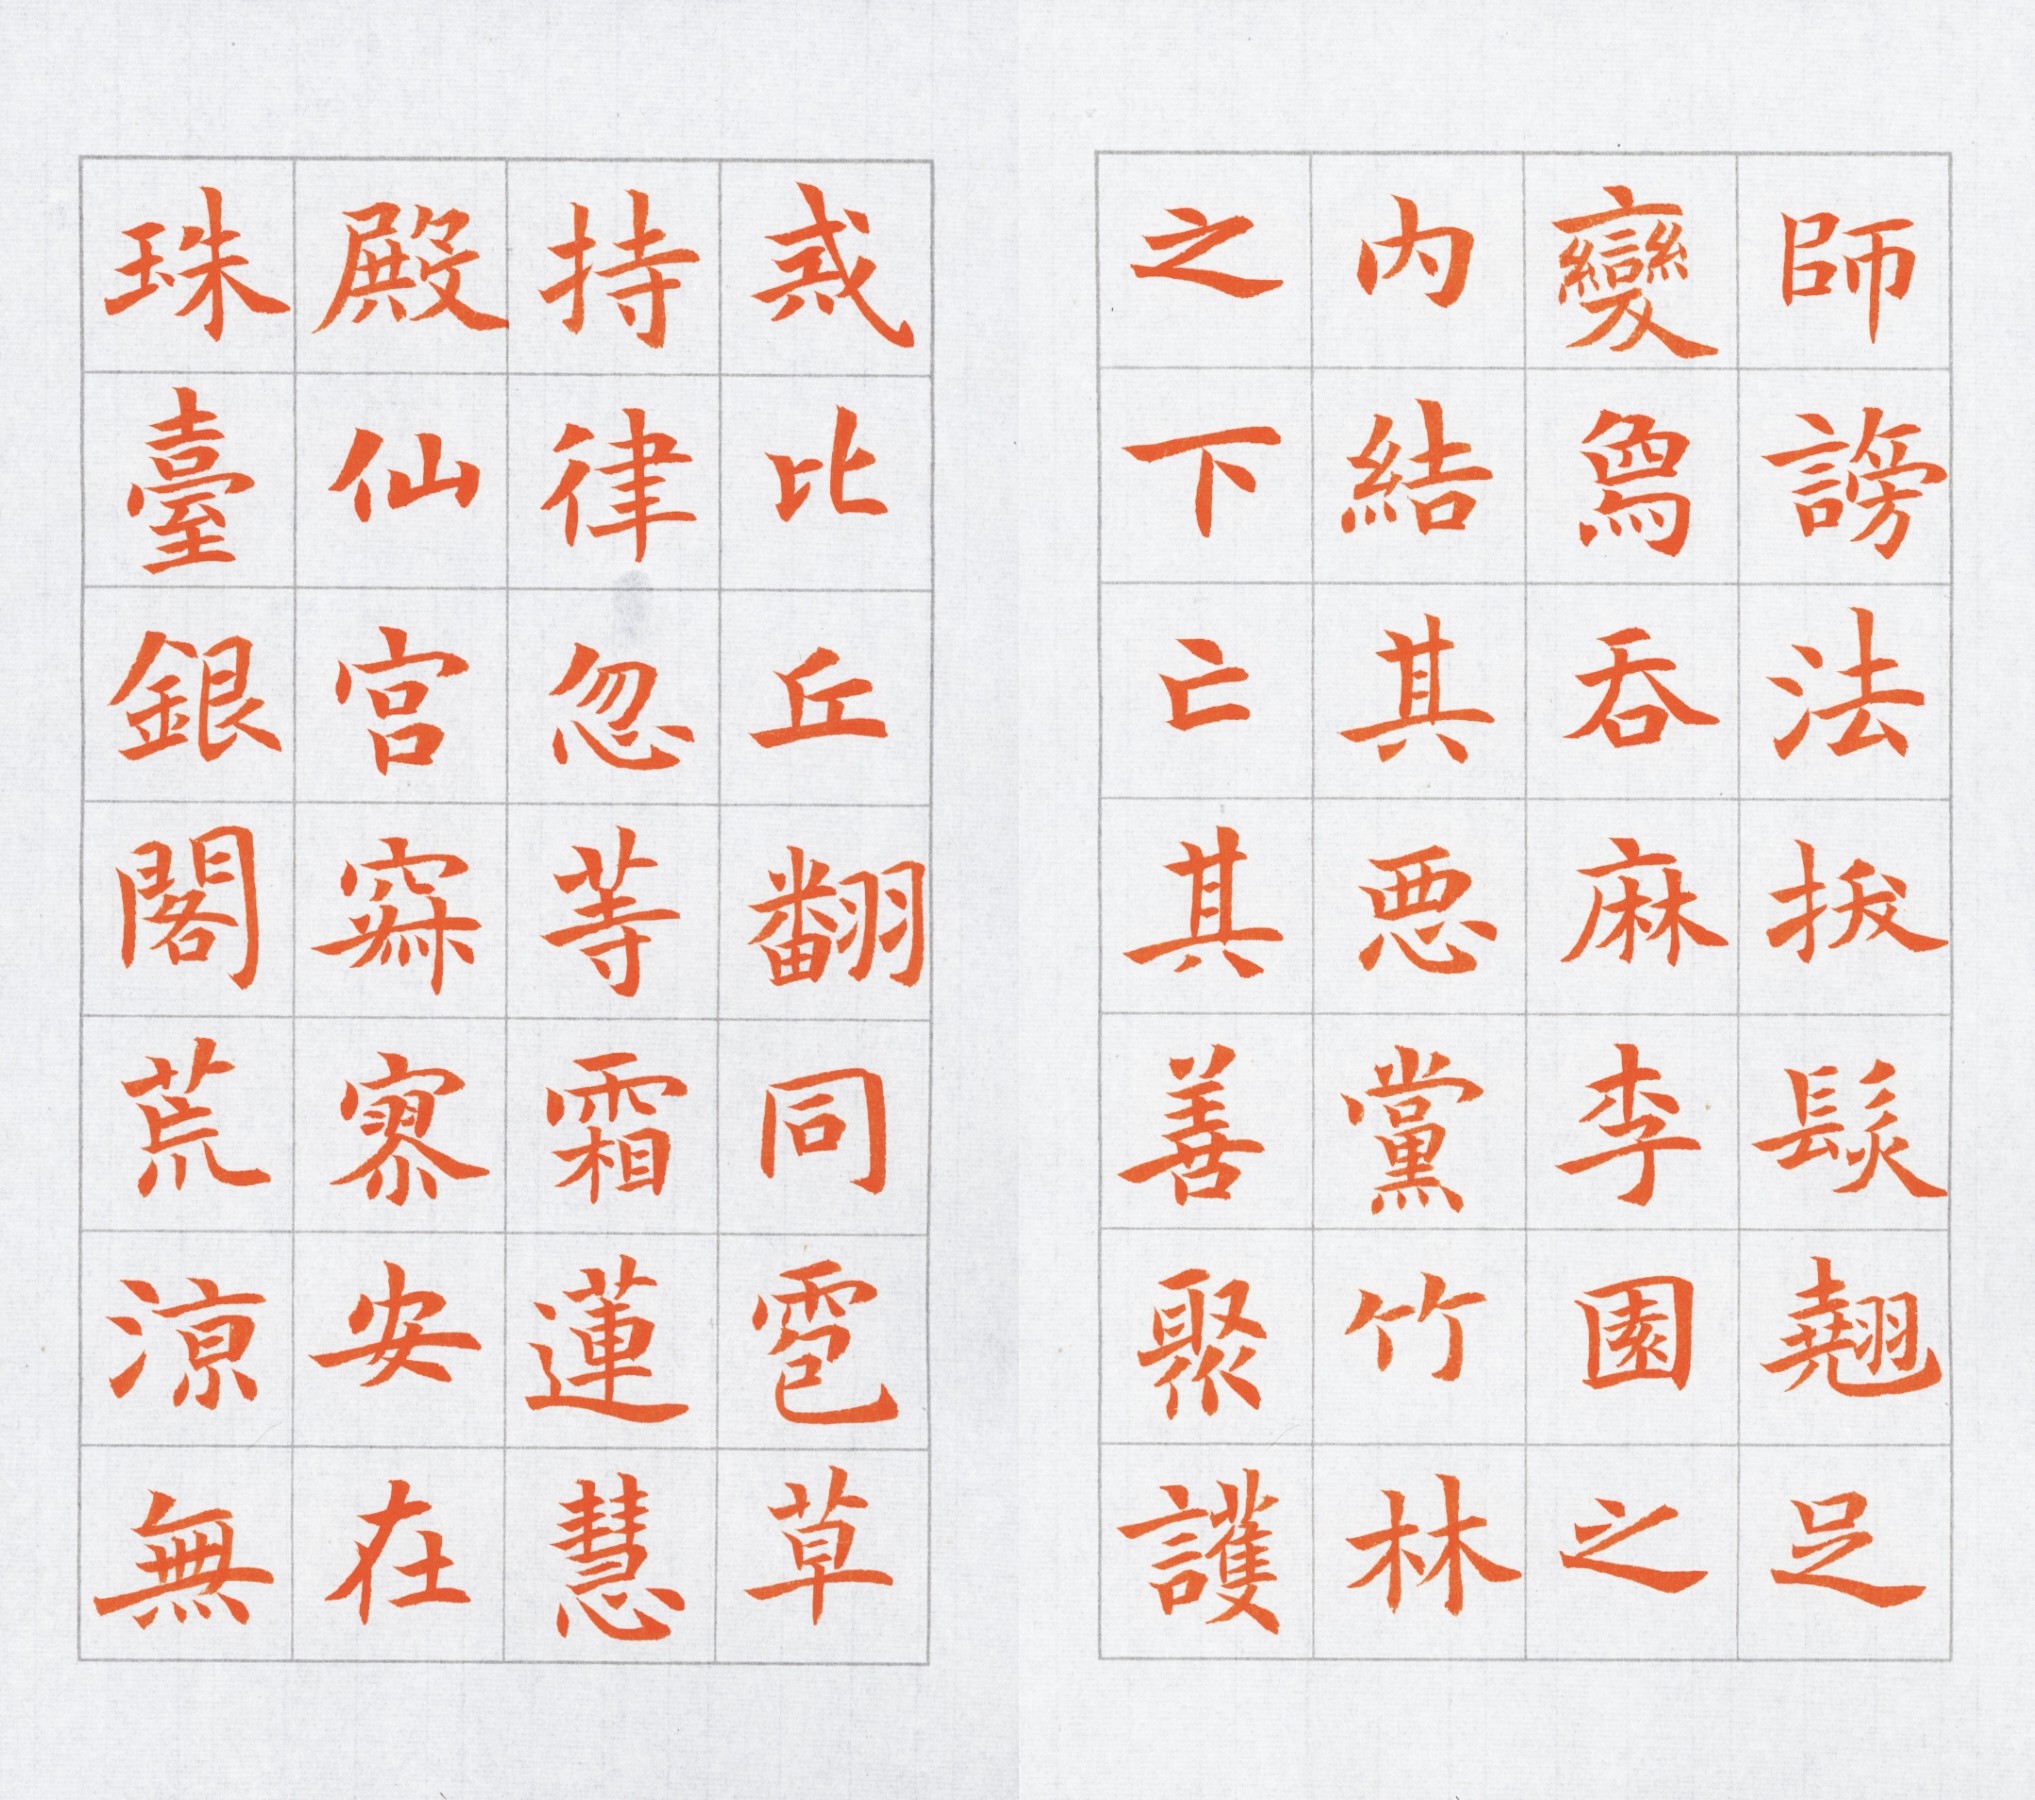 師謗法拔髮翹足
變舄吞麻李園之
內結其惡黨竹林
之下亡其善聚護
戒比丘翻同雹草
持律忽等霜蓮慧
殿仙宮寂寥安在
珠臺銀閣荒涼無